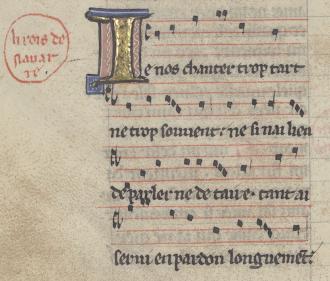 li rois de
nauar
re
Ie nos chanter trop tart
ne trop souuent: ne si nai bien
de parler ne de taire. tant ai
serui en pardon longuement: